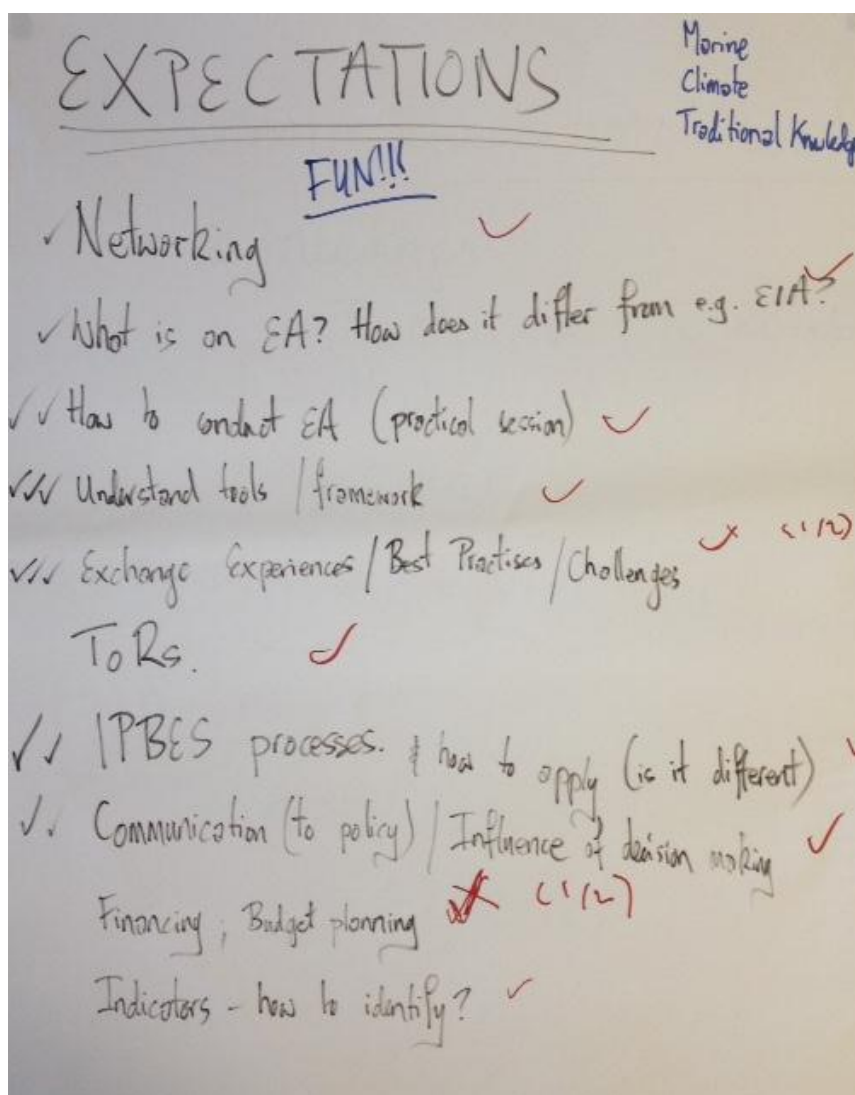 EXPECTATIONS
Marine
Climate
Traditional Knowledge
FUN!!!
✓ Networking ✓
✓ What is an EA? How does it differ from e.g. EIA? ✓
✓✓ How to conduct EA (practical session) ✓
✓✓✓ Understand tools / framework ✓
✓✓✓ Exchange Experiences / Best Practises / Challenges ✓ (1/2)
ToRs. ✓
✓✓ IPBES processes. & how to apply (is it different) ✓
✓✓ Communication (to policy) / Influence of decision making ✓
Financing, Budget planning ✗ (1/2)
Indicators - how to identify? ✓